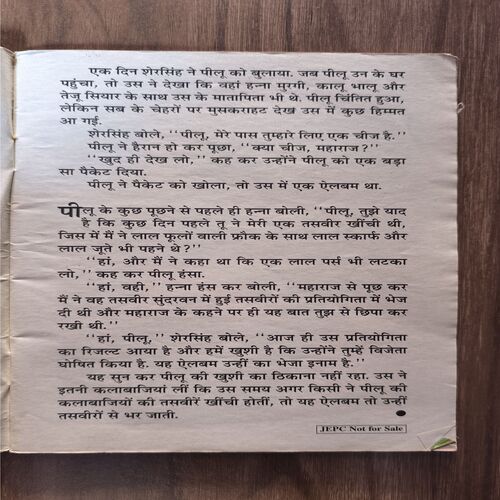 एक दिन शेरसिंह ने पीलू को बुलाया. जब पीलू उन के घर
पहुंचा, तो उस ने देखा कि वहां हन्ना मुरगी, कालू भालू और
तेजू सियार के साथ उस के मातापिता भी थे. पीलू चिंतित हुआ,
लेकिन सब के चेहरों पर मुसकराहट देख उस में कुछ हिम्मत
आ गई.
शेरसिंह बोले, ‘‘पीलू, मेरे पास तुम्हारे लिए एक चीज है.’’
पीलू ने हैरान हो कर पूछा, ‘‘क्या चीज, महाराज?’’
‘‘खुद ही देख लो,’’ कह कर उन्होंने पीलू को एक बड़ा
सा पैकेट दिया.
पीलू ने पैकेट को खोला, तो उस में एक ऐलबम था.
पीलू के कुछ पूछने से पहले ही हन्ना बोली, ‘‘पीलू, तुझे याद
है कि कुछ दिन पहले तू ने मेरी एक तसवीर खींची थी,
जिस में मैं ने लाल फूलों वाली फ्रौक के साथ लाल स्कार्फ और
लाल जूते भी पहने थे?’’
‘‘हां, और मैं ने कहा था कि एक लाल पर्स भी लटका
लो,’’ कह कर पीलू हंसा.
‘‘हां, वही,’’ हन्ना हंस कर बोली, ‘‘महाराज से पूछ कर
मैं ने वह तसवीर सुंदरवन में हुई तसवीरों की प्रतियोगिता में भेज
दी थी और महाराज के कहने पर ही यह बात तुझ से छिपा कर
रखी थी.’’
‘‘हां, पीलू,’’ शेरसिंह बोले, ‘‘आज ही उस प्रतियोगिता
का रिजल्ट आया है और हमें खुशी है कि उन्होंने तुम्हें विजेता
घोषित किया है. यह ऐलबम उन्हीं का भेजा इनाम है.’’
यह सुन कर पीलू की खुशी का ठिकाना नहीं रहा. उस ने
इतनी कलाबाजियां लीं कि उस समय अगर किसी ने पीलू की
कलाबाजियों की तसवीरें खींची होतीं, तो यह ऐलबम तो उन्हीं
तसवीरों से भर जाती.
JEPC Not for Sale